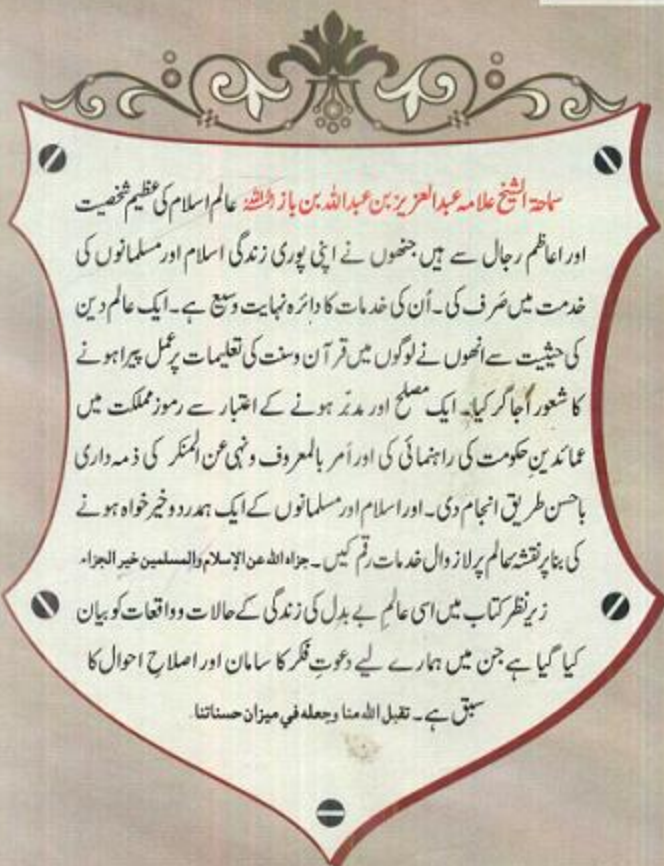 سماحۃ الشیخ علامہ عبدالعزیز بن عبداللہ بن باز رحمہ اللہ عالم اسلام کی عظیم شخصیت
اور اعاظم رجال سے ہیں جنھوں نے اپنی پوری زندگی اسلام اور مسلمانوں کی
خدمت میں صَرف کی۔ اُن کی خدمات کا دائرہ نہایت وسیع ہے۔ ایک عالم دین
کی حیثیت سے انھوں نے لوگوں میں قرآن وسنت کی تعلیمات پر عمل پیرا ہونے
کا شعور اُجاگر کیا۔ ایک مصلح اور مدبّر ہونے کے اعتبار سے رموزِ مملکت میں
عمائدینِ حکومت کی راہنمائی کی اور اَمر بالمعروف ونہی عن المنکر کی ذمہ داری
باحسن طریق انجام دی۔ اور اسلام اور مسلمانوں کے ایک ہمدرد وخیر خواہ ہونے
کی بنا پر نقشۂ عالم پر لازوال خدمات رقم کیں۔ جزاه الله عن الإسلام والمسلمين خير الجزاء
زیرنظر کتاب میں اسی عالمِ بے بدل کی زندگی کے حالات وواقعات کو بیان
کیا گیا ہے جن میں ہمارے لیے دعوتِ فکر کا سامان اور اصلاحِ احوال کا
سبق ہے۔ تقبل الله منا وجعله في ميزان حسناتنا.